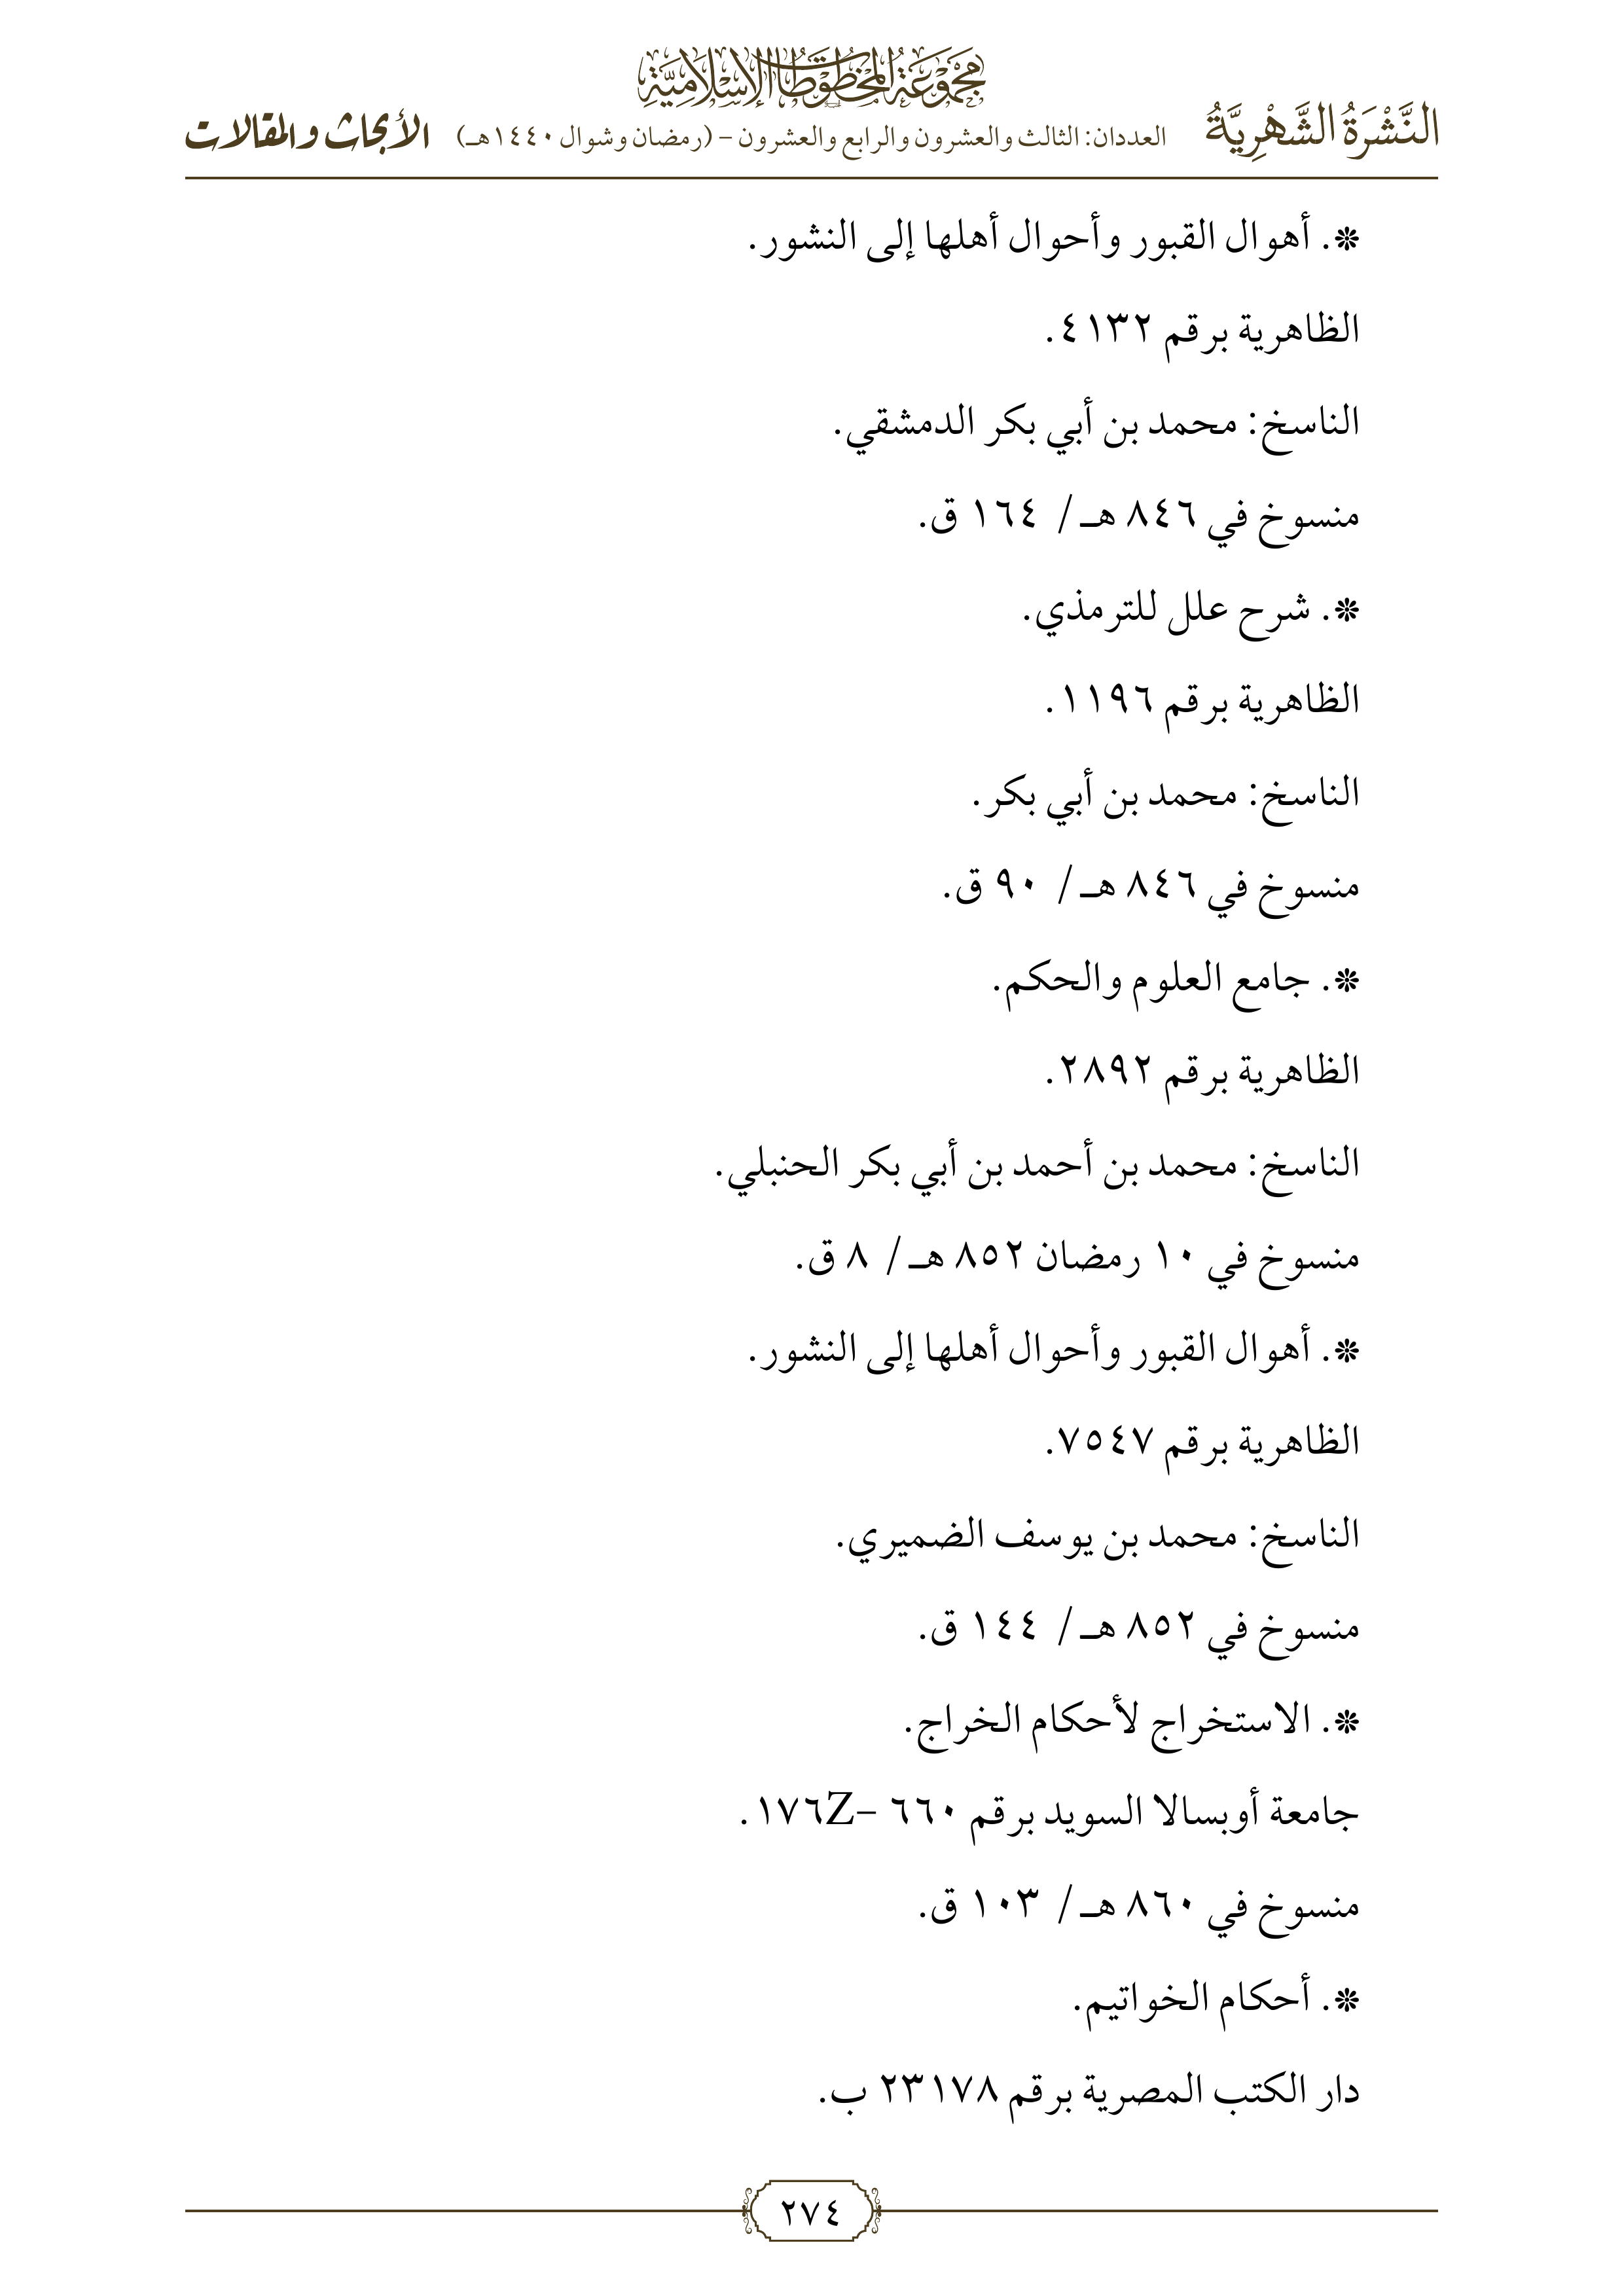 مَجْمُوعَةُ المَخْطُوطَاتِ الإِسْلَامِيَّةِ
النَّشْرَةُ الشَّهْرِيَّةُ العددان: الثالث والعشرون والرابع والعشرون - (رمضان وشوال ١٤٤٠هـ) الأبحاث والمقالات
❊. أهوال القبور وأحوال أهلها إلى النشور.
الظاهرية برقم ٤١٣٢.
الناسخ: محمد بن أبي بكر الدمشقي.
منسوخ في ٨٤٦ هـ/ ١٦٤ ق.
❊. شرح علل للترمذي.
الظاهرية برقم ١١٩٦.
الناسخ: محمد بن أبي بكر.
منسوخ في ٨٤٦ هـ/ ٩٠ ق.
❊. جامع العلوم والحكم.
الظاهرية برقم ٢٨٩٢.
الناسخ: محمد بن أحمد بن أبي بكر الحنبلي.
منسوخ في ١٠ رمضان ٨٥٢ هـ/ ٨ ق.
❊. أهوال القبور وأحوال أهلها إلى النشور.
الظاهرية برقم ٧٥٤٧.
الناسخ: محمد بن يوسف الضميري.
منسوخ في ٨٥٢ هـ/ ١٤٤ ق.
❊. الاستخراج لأحكام الخراج.
جامعة أوبسالا السويد برقم ٦٦٠ –١٧٦Z.
منسوخ في ٨٦٠ هـ/ ١٠٣ ق.
❊. أحكام الخواتيم.
دار الكتب المصرية برقم ٢٣١٧٨ ب.
٢٧٤